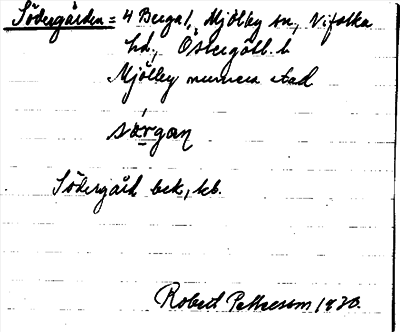 Södergården = 4 Berga 1, Mjölby sn, Vifolka
hd, Östergötl. l
Mjölby numera stad
sǻrgan
Södergård bek, kb.
Robert Pettersson 1920.